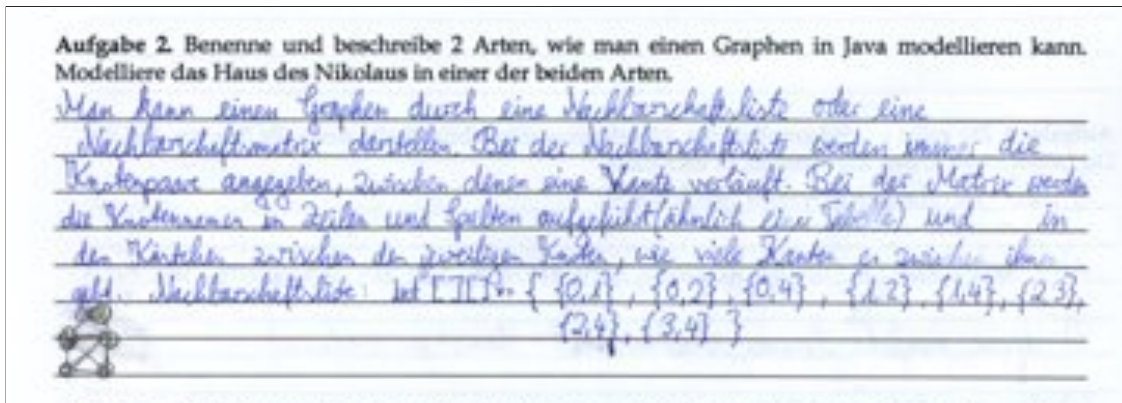 Aufgabe 2. Benenne und beschreibe 2 Arten, wie man einen Graphen in Java modellieren kann.
Modelliere das Haus des Nikolaus in einer der beiden Arten.
Man kann einen Graphen durch eine Nachbarschaftsliste oder eine
Nachbarschaftsmatrix darstellen. Bei der Nachbarschaftsliste werden immer die
Knotenpaare angegeben, zwischen denen eine Kante verläuft. Bei der Matrix werden
die Knotennamen in Zeilen und Spalten aufgeführt (ähnlich einer Tabelle) und in
den Kästchen zwischen den jeweiligen Knoten, wie viele Kanten es zwischen ihnen
gibt. Nachbarschaftsliste: int [][] = { {0,1}, {0,2}, {0,4}, {1,2}, {1,4}, {2,3},
{2,4}, {3,4} }